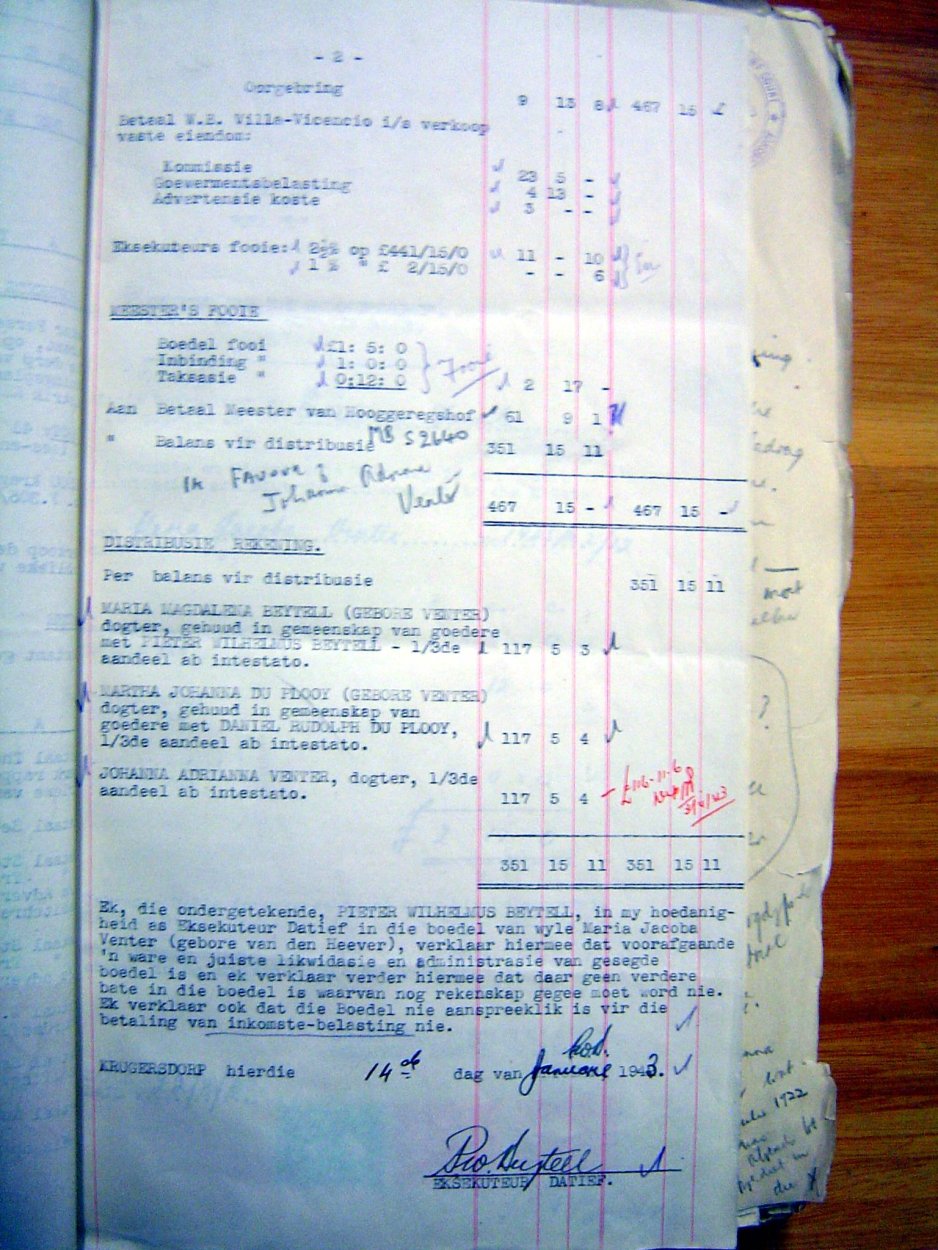 - 2 -
Oorgebring 9 13 8 467 15 -
Betaal W.E. Villa-Vicencio i/s verkoop
vaste eiendom:
Kommissie 23 5 -
Goewermentsbelasting 4 13 -
Advertensie koste 3 - -
Eksekuteurs fooie: 2½% op £441/15/0 11 - 10
1 % " £ 2/15/0 - - 6
MEESTER'S FOOIE
Boedel fooi £1: 5: 0
Inbinding " 1: 0: 0
Taksasie " 0:12: 0 2 17 -
Aan Betaal Meester van Hooggeregshof 61 9 1
" Balans vir distribusie 351 15 11
MB S2640
IN FAVOUR
Johanna Adriana
Venter
467 15 - 467 15 -
DISTRIBUSIE REKENING.
Per balans vir distribusie 351 15 11
MARIA MAGDALENA BEYTELL (GEBORE VENTER)
dogter, gehuud in gemeenskap van goedere
met PIETER WILHELMUS BEYTELL - 1/3de 117 5 3
aandeel ab intestato.
MARTHA JOHANNA DU PLOOY (GEBORE VENTER)
dogter, gehuud in gemeenskap van
goedere met DANIEL RUDOLPH DU PLOOY,
1/3de aandeel ab intestato. 117 5 4
JOHANNA ADRIANNA VENTER, dogter, 1/3de
aandeel ab intestato. 117 5 4 - £116-11-6
351 15 11 351 15 11
Ek, die ondergetekende, PIETER WILHELMUS BEYTELL, in my hoedanig-
heid as Eksekuteur Datief in die boedel van wyle Maria Jacoba
Venter (gebore van den Heever), verklaar hiermee dat voorafgaande
'n ware en juiste likwidasie en administrasie van gesegde
boedel is en ek verklaar verder hiermee dat daar geen verdere
bate in die boedel is waarvan nog rekenskap gegee moet word nie.
Ek verklaar ook dat die Boedel nie aanspreeklik is vir die
betaling van inkomste-belasting nie.
KRUGERSDORP hierdie 14de dag van Januarie 1943.
P.W. Beytell
EKSEKUTEUR DATIEF.